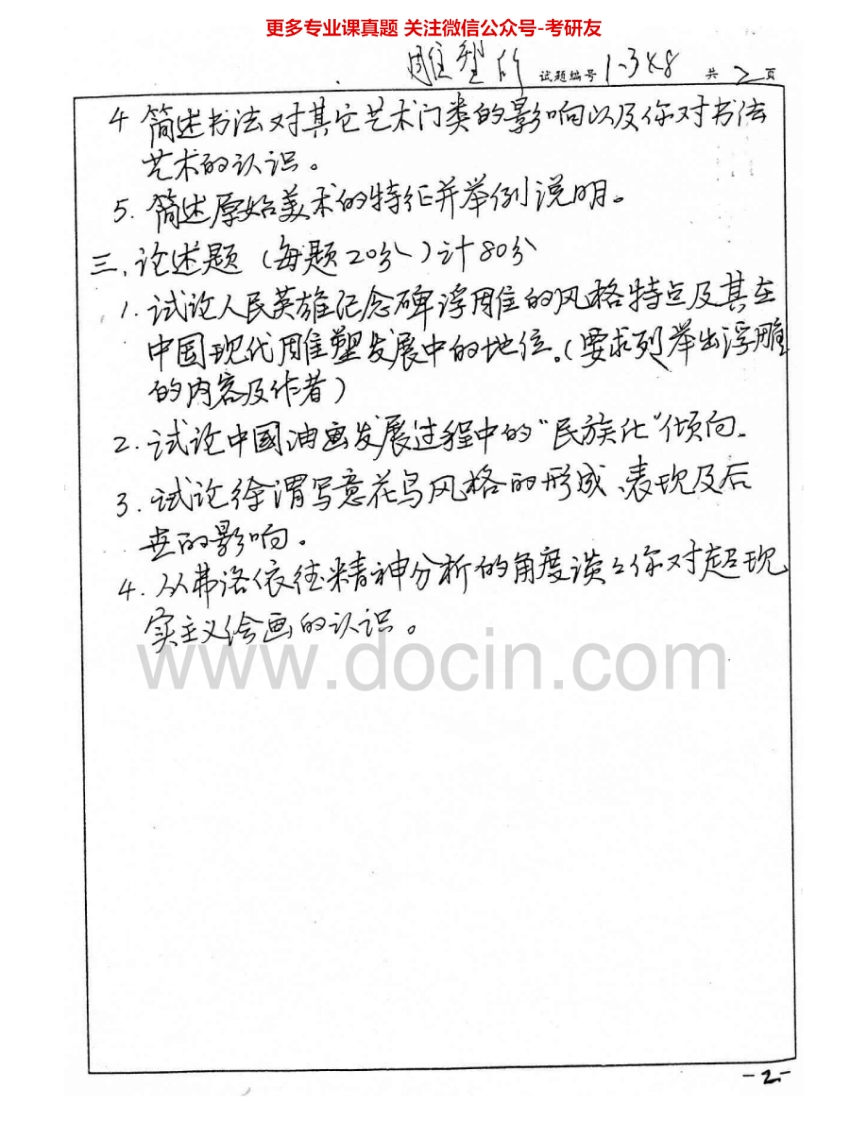 更多专业课真题 关注微信公众号-考研友
雕塑所 试题编号 1-3K8 共 2 页
4 简述书法对其它艺术门类的影响以及你对书法
艺术的认识。
5. 简述原始美术的特征并举例说明。
三、论述题（每题20分）计80分
1. 试论人民英雄纪念碑浮雕的风格特点及其在
中国现代雕塑发展中的地位。（要求列举出浮雕
的内容及作者）
2. 试论中國油画发展过程中的“民族化”倾向。
3. 试论徐渭写意花鸟风格的形成、表现及后
世的影响。
4. 从弗洛依德精神分析的角度谈谈你对超现
实主义绘画的认识。
www.docin.com
-2-